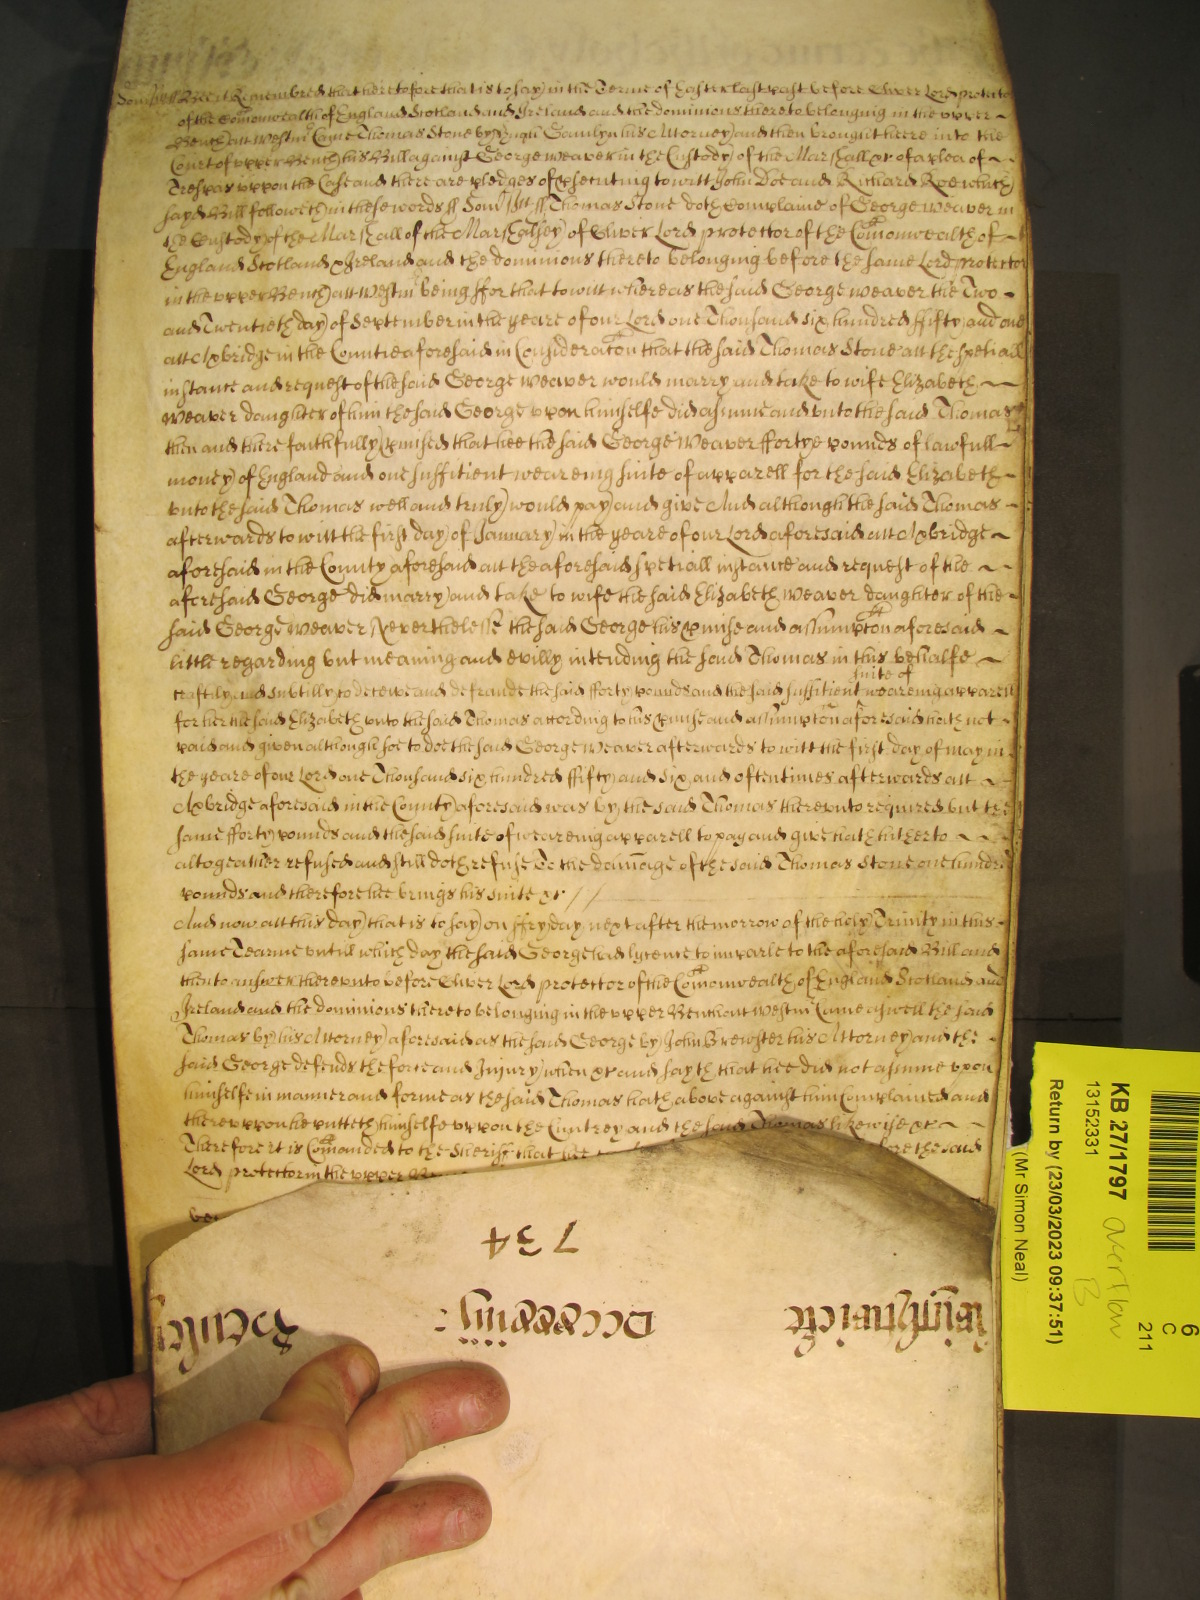 Som~sett ss Bee it Remembred that heretofore that is to say in the Terme of Easter last past before Oliver Lord protector
of the Com̃onwealth of England Scotland and Ireland and the dominions thereto belonging in the upper
Bench att Westm̃ Came Thomas Stone by Hugh Gamlyn his Attorney and then brought heere into the
Court of upper Bench his Bill against George Weaver in the Custody of the Marshall &c of a plea of
Trespas uppon the Case and there are pledges of psecuting to witt John Doe and Richard Roe which
sayd Bill followeth in these words ss Som~sett ss Thomas Stone doth Complaine of George Weaver in
the Custody of the Marshall of the Marshalsey of Oliver Lord protector of the Com̃onwealth of
England Scotland & Ireland and the dominions thereto belonging before the same Lord protector
in the upper Bench att Westm̃ being ffor that to witt whereas the said George Weaver the Two
and Twentieth day of September in the yeare of our Lord one Thousand six hundred ffifty and one
att Axbridge in the Countie aforesaid in Consideracõn that the said Thomas Stone att the spetiall
instance and request of the said George Weaver would marry and take to wife Elizabeth
Weaver daughter of him the said George upon himselfe did assume and unto the said Thomas
then and there faithfully pmised that hee the said George Weaver ffortye pounds of lawfull
money of England and one suffitient weareing suite of apparell for the said Elizabeth
unto the said Thomas well and truly would pay and give And although the said Thomas
afterwards to witt the first day of January in the yeare of our Lord aforesaid att Axbridge
aforesaid in the County aforesaid att the aforesaid spetiall instance and request of the
aforesaid George did marry and take to wife the said Elizabeth Weaver daughter of the
said George Weaver Neverthelesse the said George his pmise and assumptõn aforesaid
little regarding but meaning and evilly intending the said Thomas in this behalfe
suite of
craftily and subtilly to deceive and defraude the said fforty pounds and the said suffitient weareing apparell
for her the said Elizabeth unto the said Thomas according to his pmise and assumptõn aforesaid hath not
paid and given although soe to doe the said George Weaver afterwards to witt the first day of May in
the yeare of our Lord one Thousand six hundred ffifty and six and oftentimes afterwards att
Axbridge aforesaid in the County aforesaid was by the said Thomas thereunto required but the
same fforty pounds and the said suite of weareing apparell to pay and give hath hitherto
altogeather refused and still doth refuse To the dam̃age of the said Thomas Stone one hundred
pounds and therefore hee brings his suite &c
And now att this day that is to say on ffryday next after the morrow of the holy Trinity in this
same Tearme untill which day the said George had lycence to imparle to the aforesaid Bill and
then to answer thereunto before Oliver Lord protector of the Com̃onwealth of England Scotland and
Ireland and the dominions thereto belonging in the upper Bench att Westm̃ Came aswell the said
Thomas by his Attorney aforesaid as the said George by John Brewster his Attorney and the
said George defends the force and Injury when &c and sayth that hee did not assume upon
himselfe in manner and forme as the said Thomas hath above against him Complained and
thereuppon he putteth himselfe uppon the Cuntrey and the said Thomas likewise &c
Therefore it is Com̃anded to the Sheriff that hee fore the said
Lord protector in the upper
734
KB 27/1797
13152331
Return by (23/03/2023 09:37:51)
(Mr Simon Neal)
overflow
B
6
C
211